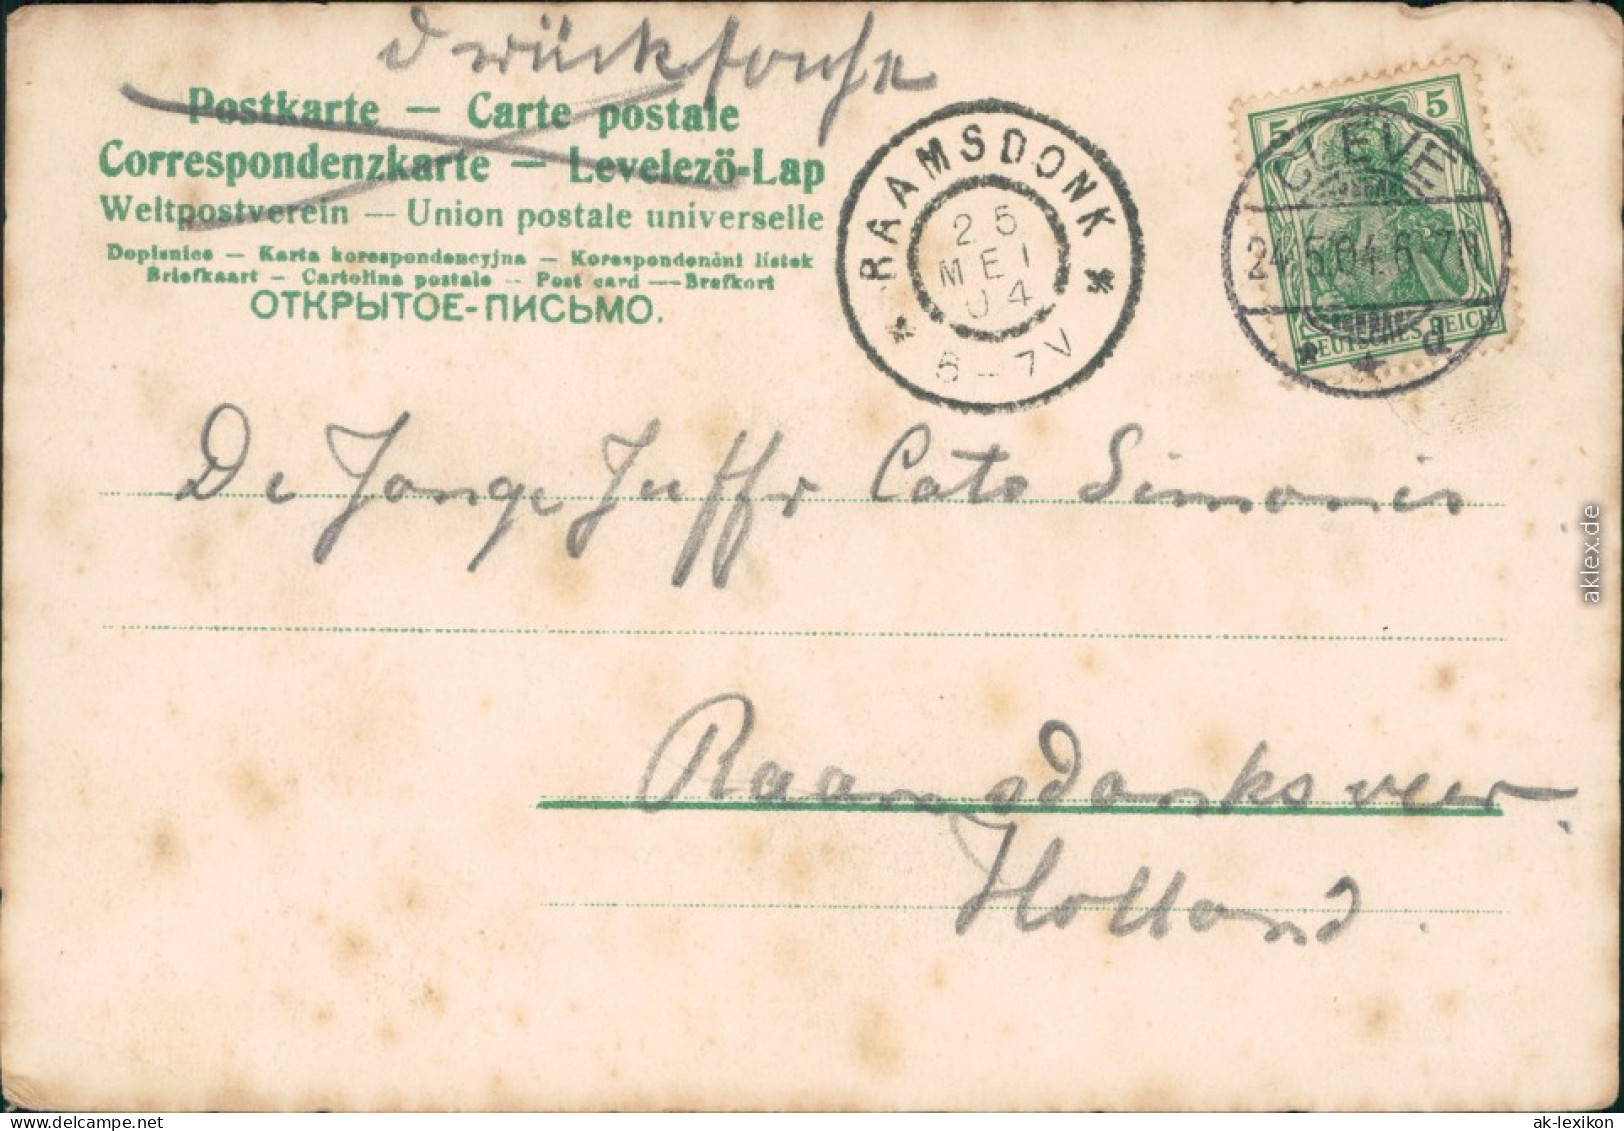 Drücksache
Postkarte — Carte postale
Correspondenzkarte — Levelező-Lap
Weltpostverein — Union postale universelle
Dopisnice — Karta korespondencyjna — Korespondenční lístek
Briefkaart — Cartolina postale — Post card — Brefkort
ОТКРЫТОЕ-ПИСЬМО.
* RAAMSDONK *
25
MEI
04
6-7V
5 5
CLEVE
24.5.04.6-7N
* * d
DEUTSCHES REICH
De Jonge Juffr Cato Simonis
Raamsdonksveer
Holland.
aklex.de
www.delcampe.net
ak-lexikon